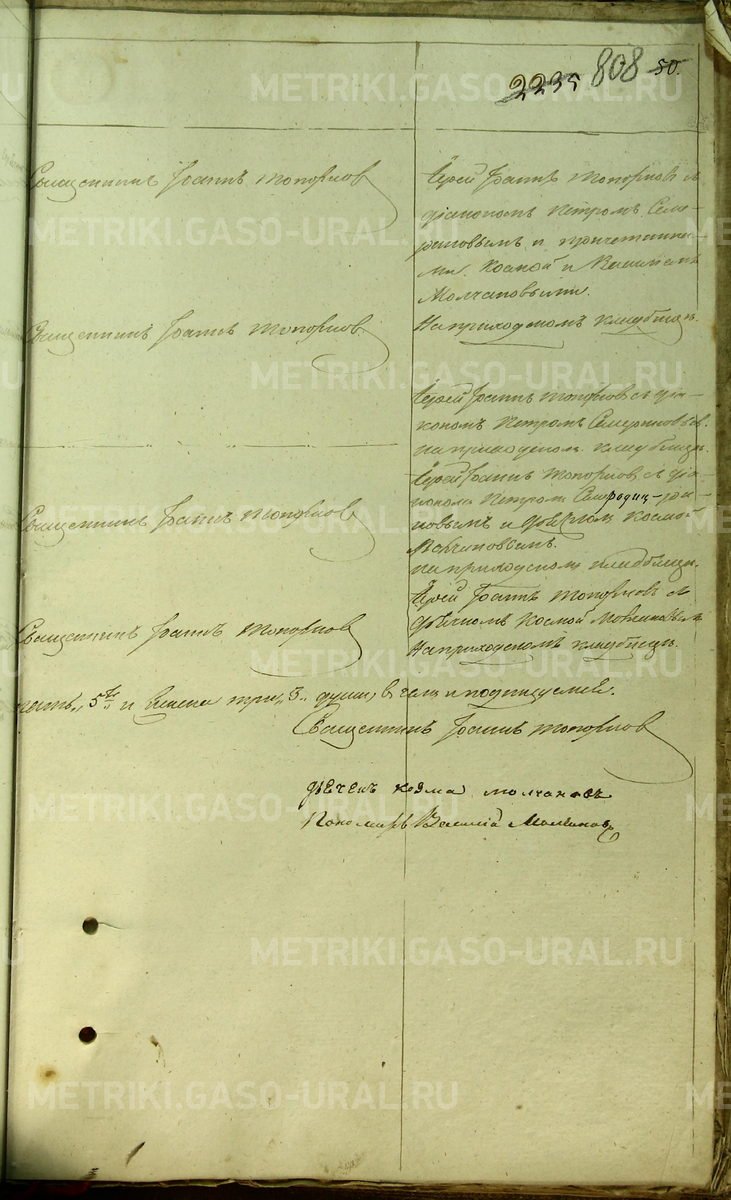 2235 808 50.
Священникъ Іоаннъ Топорковъ
Іерей Іоаннъ Топорковъ съ
діакономъ Петромъ Семе-
риновымъ и причетника-
ми Космой и Василіемъ
Молчановыми.
На приходскомъ кладбищѣ.
Священникъ Іоаннъ Топорковъ
Іерей Іоаннъ Топорковъ съ діа-
кономъ Петромъ Семериновымъ.
на приходскомъ кладбищѣ.
Іерей Іоаннъ Топорковъ съ діа-
кономъ Петромъ
новымъ и дьячкомъ Космой
Молчановымъ.
на приходскомъ кладбищѣ.
Священникъ Іоаннъ Топорковъ
Іерей Іоаннъ Топорковъ съ
дьячкомъ Космой Молчановымъ
На приходскомъ кладбищѣ.
Священникъ Іоаннъ Топорковъ
5 и три, 3. души, в чемъ и подписуемся.
Священникъ Іоаннъ Топорковъ
дьячекъ Козма молчановъ
Пономарь Василій Молчановъ
METRIKI.GASO-URAL.RU